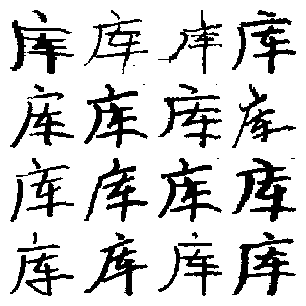 库库库库
库库库库
库库库库
库库库库